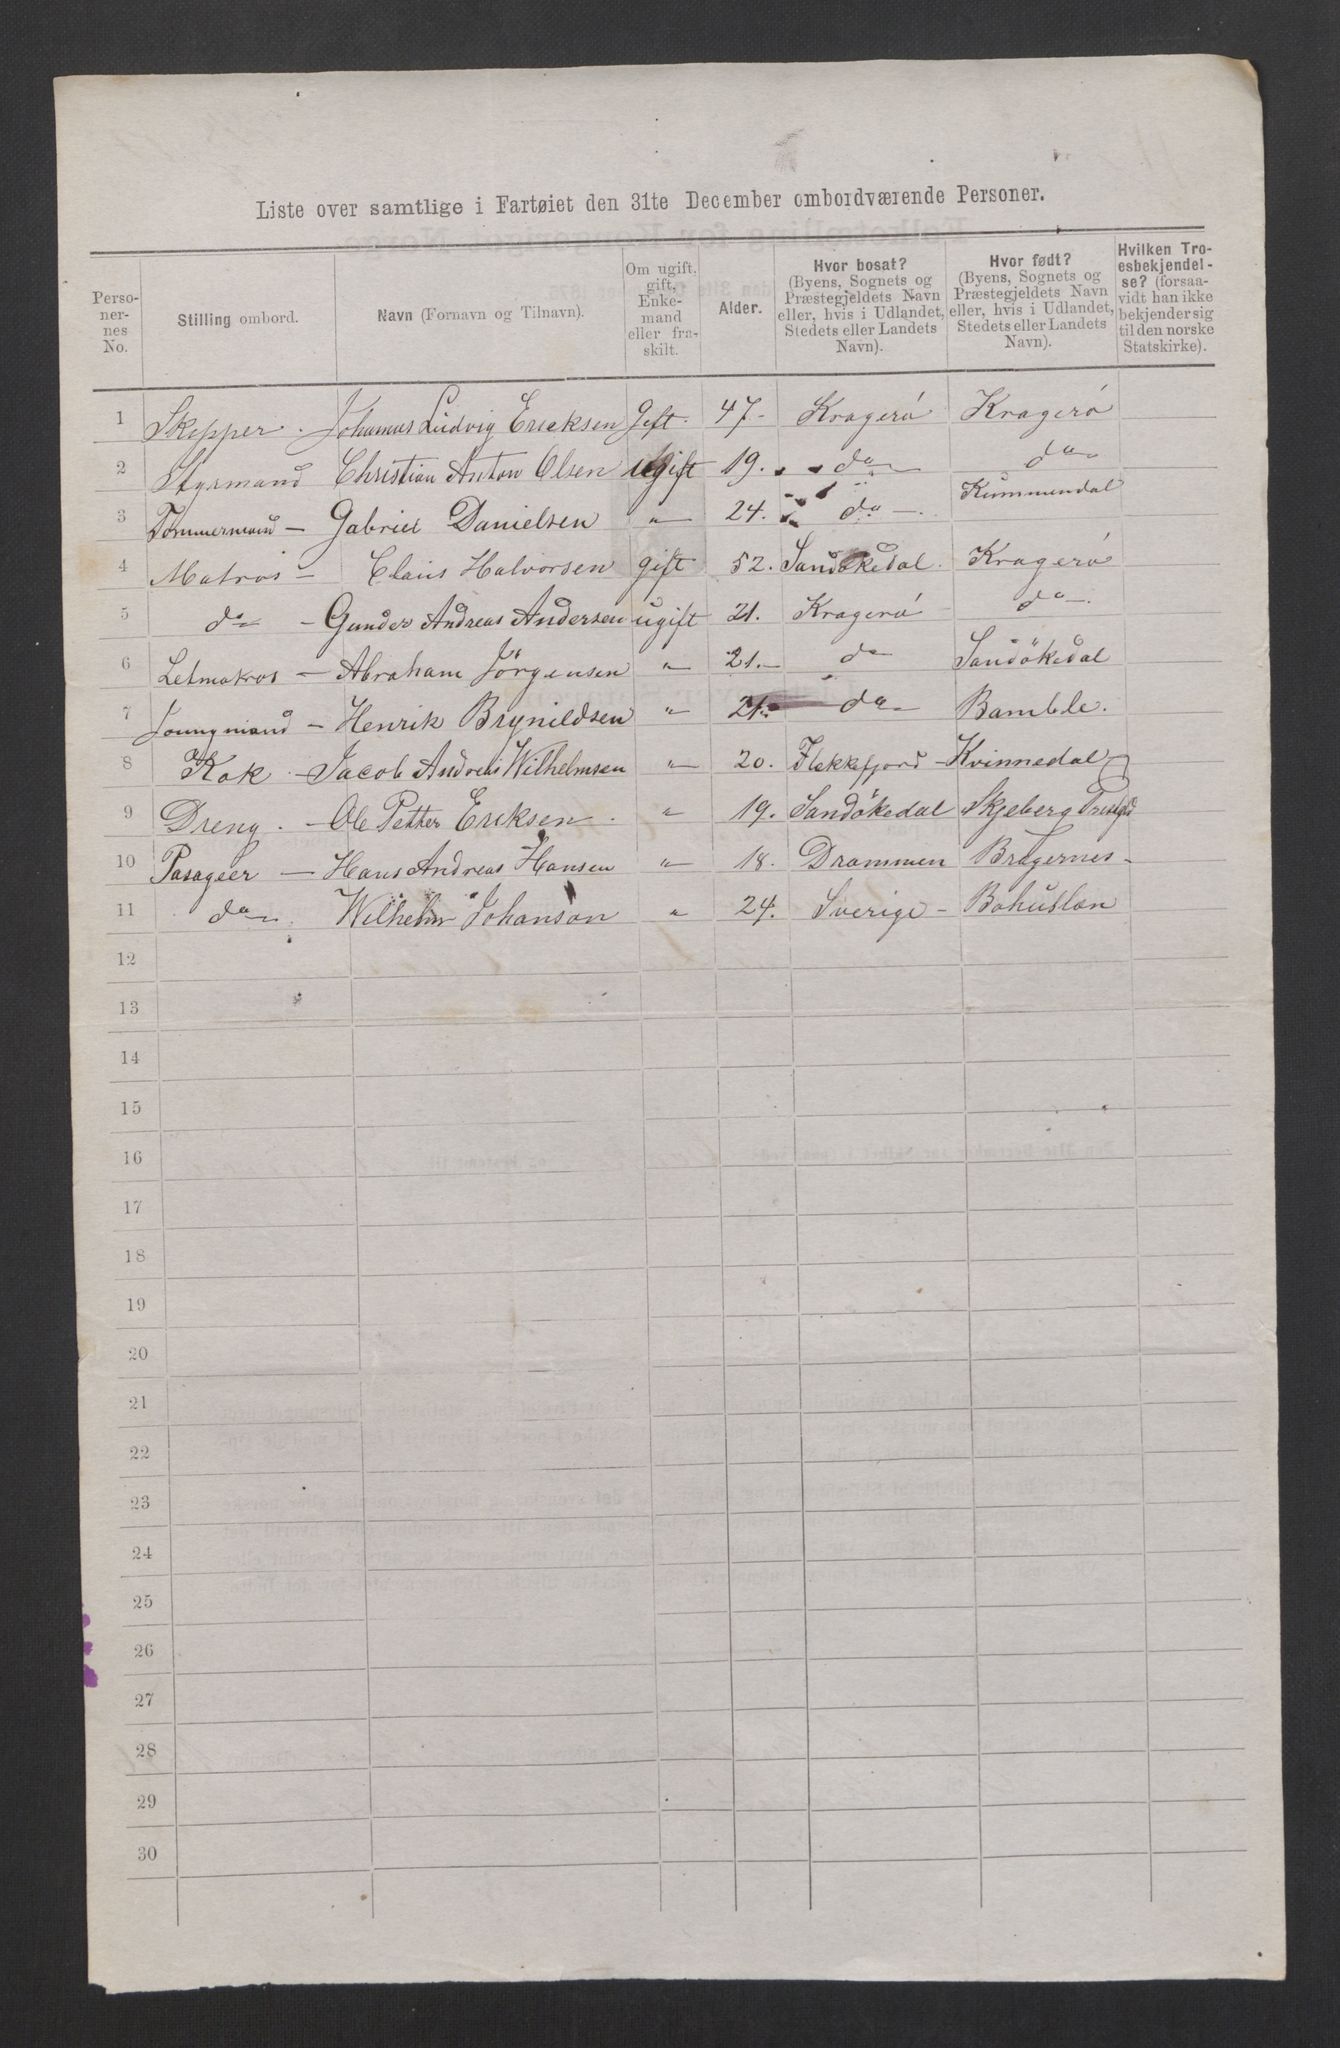 Liste over samtlige i Fartøiet den 31te December ombordværende Personer.
Perso-
ner-
nes
No.
Stilling ombord.
Navn (Fornavn og Tilnavn).
Om ugift,
gift,
Enke-
mand
eller fra-
skilt.
Alder.
Hvor bosat?
(Byens, Sognets og
Præstegjeldets Navn
eller, hvis i Udlandet,
Stedets eller Landets
Navn).
Hvor født?
(Byens, Sognets og
Præstegjeldets Navn
eller, hvis i Udlandet,
Stedets eller Landets
Navn).
Hvilken Tro-
esbekjendel-
se? (forsaa-
vidt han ikke
bekjender sig
til den norske
Statskirke).
1 Skipper. Johannes Ludvig Ericksen Gift. 47- Kragerö Kragerö
2 Styrmand Christian Anton Olsen ugift 19. do do
3 Tömmermand - Gabriel Danielsen " 24. do -. Kummendal
4 Matros - Claus Halvorsen gift 52. Sandökedal. Kragerö
5 do - Gunder Andreas Andersen ugift 21. Kragerö do
6 Letmatros - Abraham Jörgensen " 21.- do Sandökedal
7 Joungmand - Henrik Brynildsen " 21.- do Bamble.
8 Kok. - Jacob Andreas Wilhelmsen " 20. Flekkefjord - Kvinnedal
9 Dreng. - Ole Petter Ericksen. " 19. Sandökedal Skjeberg
10 Pasageer - Hans Andreas Hansen " 18. Drammen Bragernes-
11 do Wilhelm Johanson " 24. Sverige - Bohuslän
12
13
14
15
16
17
18
19
20
21
22
23
24
25
26
27
28
29
30